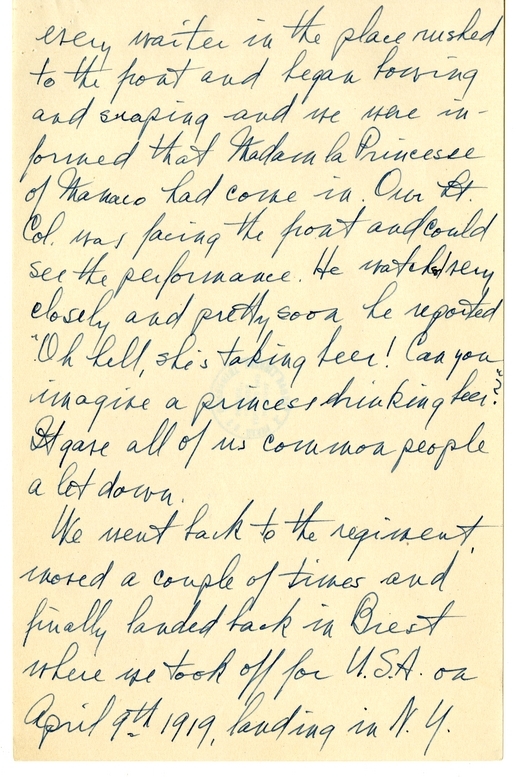 every waiter in the place rushed
to the front and began bowing
and scraping and we were in-
formed that Madam la Princesse
of Manaco had come in. Our Lt.
Col. was facing the front and could
see the performance. He watched very
closely and pretty soon he reported
"Oh hell, she's taking beer! Can you
imagine a princess drinking beer?"
It gave all of us common people
a let down.
We went back to the regiment,
moved a couple of times and
finally landed back in Brest
where we took off for U.S.A. on
April 9th 1919, landing in N.Y.